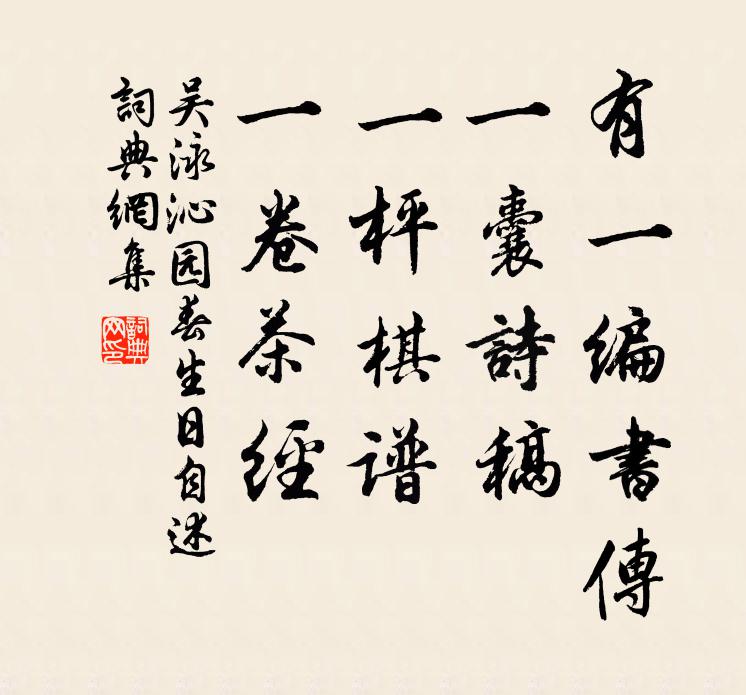 有一编書傳
一囊詩稿
一枰棋谱
一卷茶經
吴泳沁园春生日自述
詞典網集
詞典网印